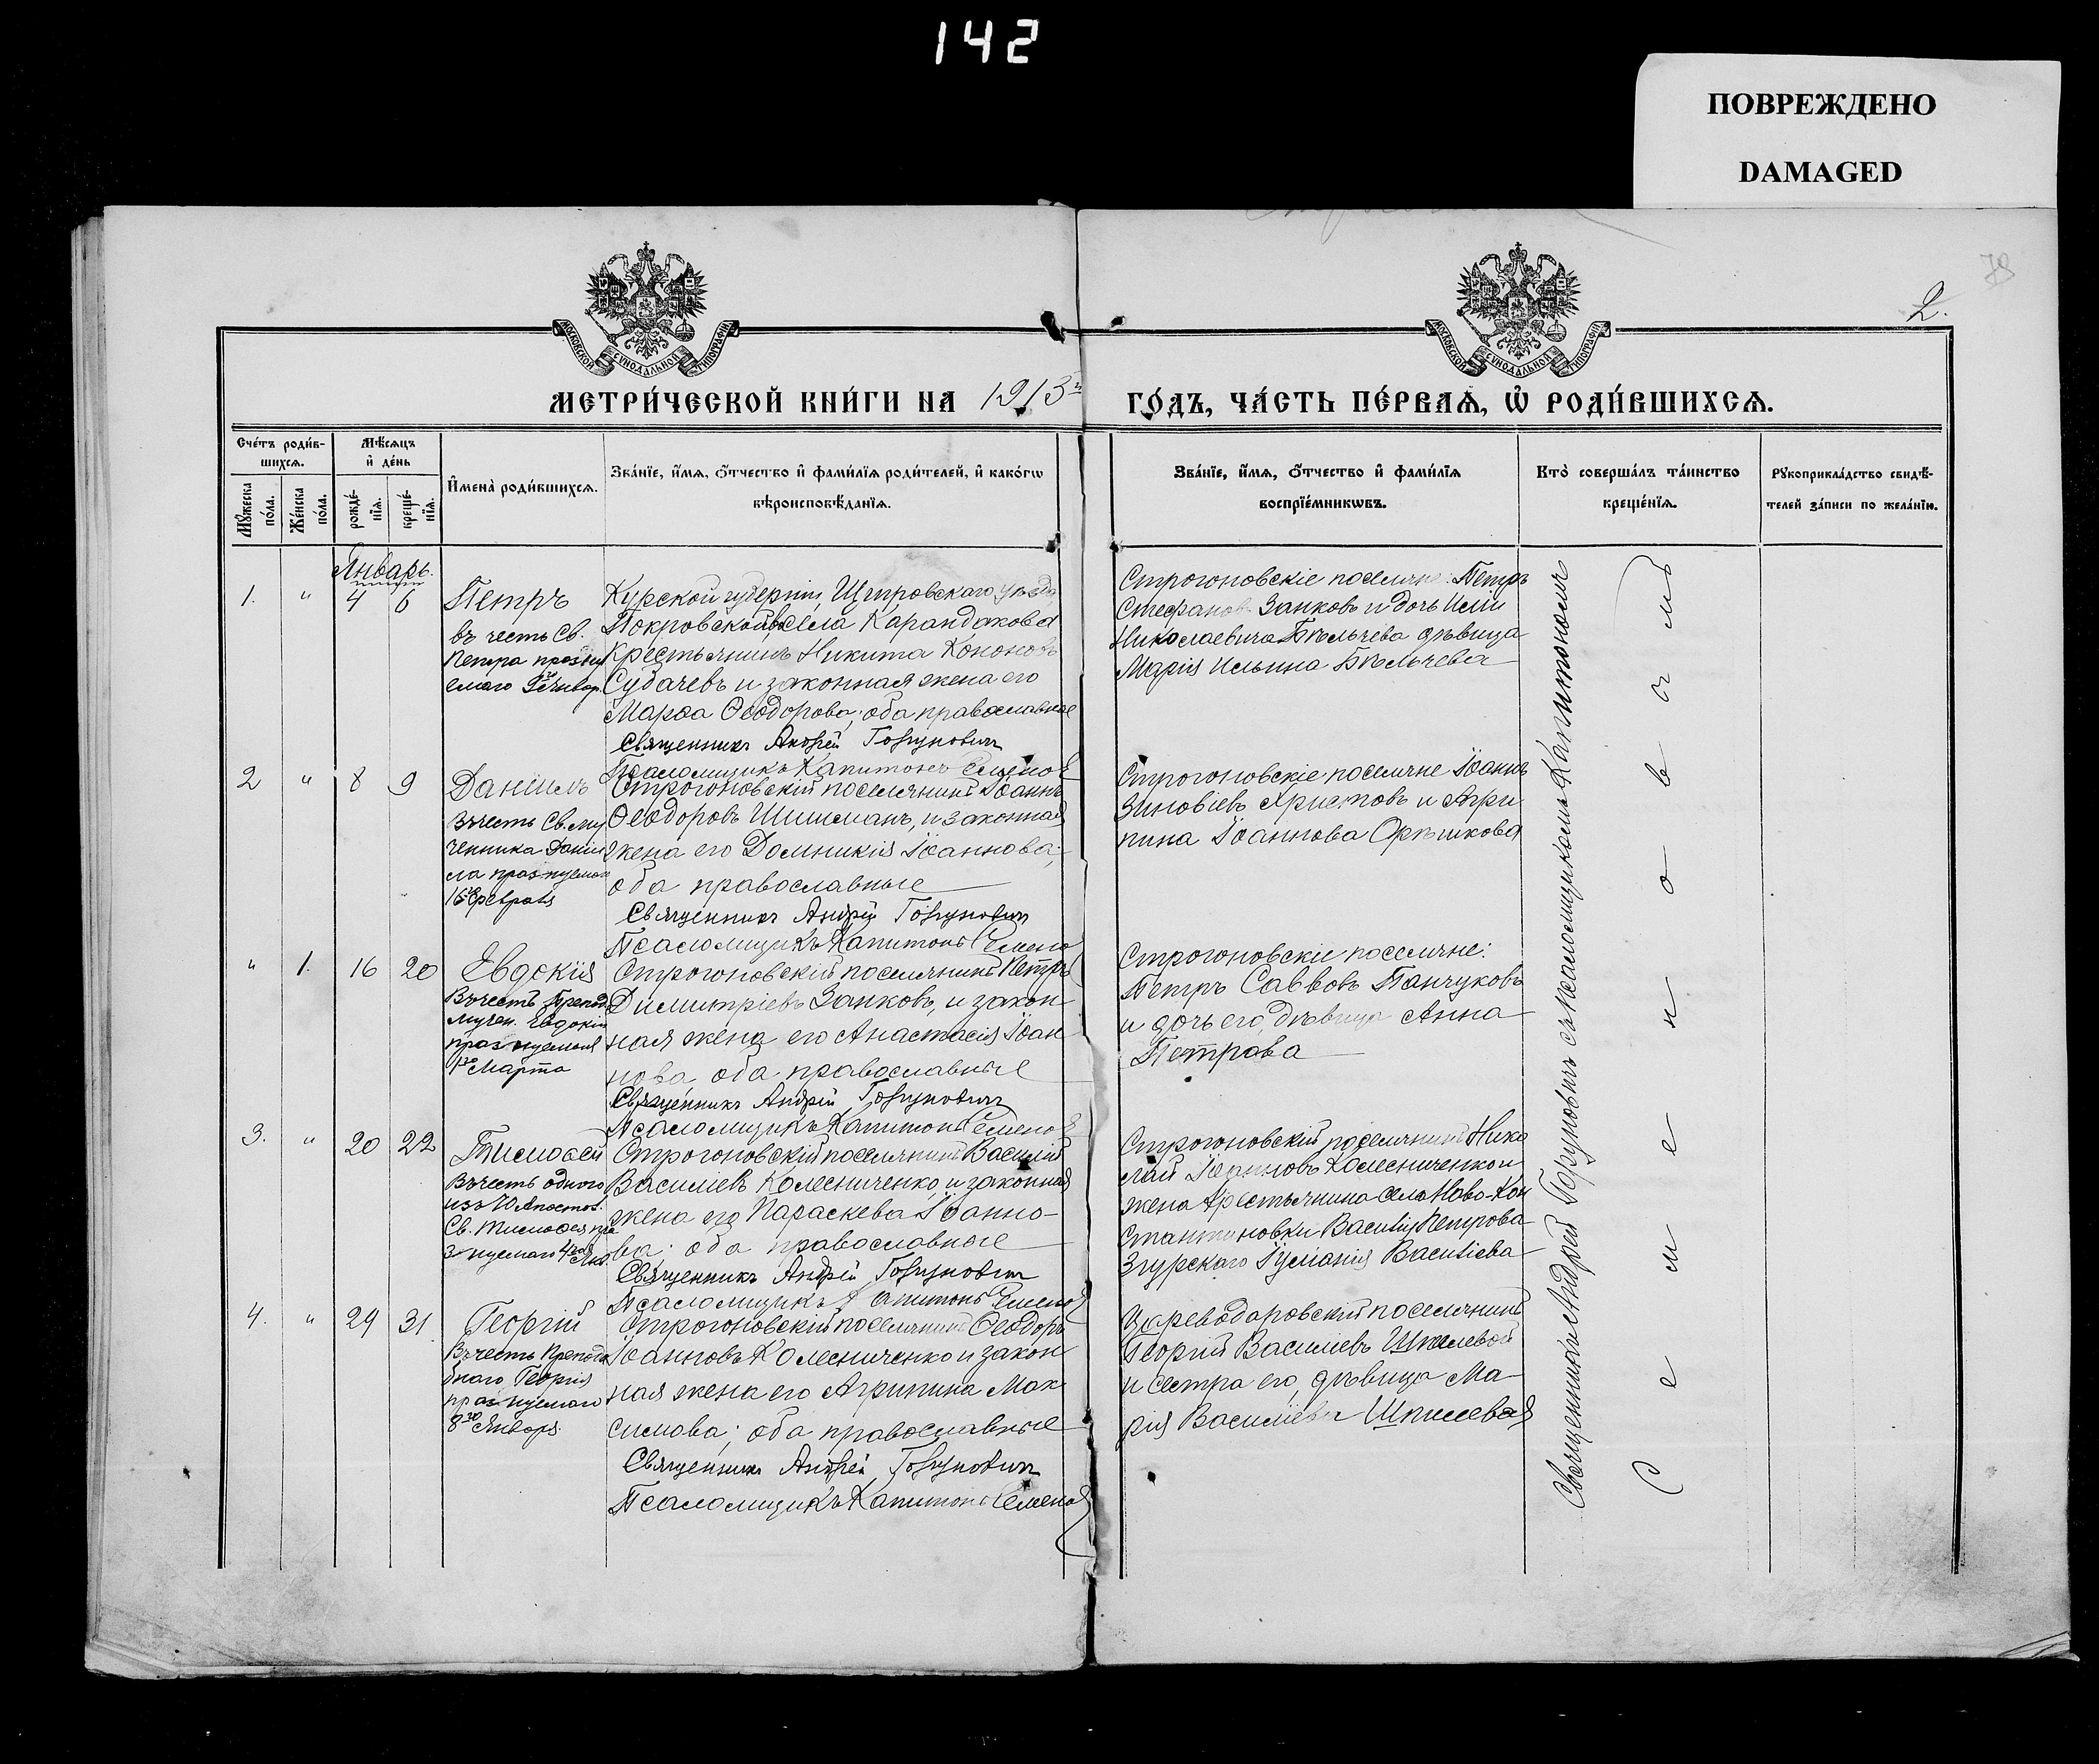 142
ПОВРЕЖДЕНО
DAMAGED
78
2.
МОСКОВСКОЙ СѴНОДАЛЬНОЙ ТИПОГРАФІИ
МОСКОВСКОЙ СѴНОДАЛЬНОЙ ТИПОГРАФІИ
МЕТРИ́ЧЕСКОЙ КНИ́ГИ НА 1913й
ГО́ДЪ, ЧА́СТЬ ПЕ́РВАѦ, Ѡ҆ РОДИ́ВШИХСѦ.
Сче́тъ роди́в-
шихсѧ.
Мꙋ́жеска по́ла.
Же́нска по́ла.
Мѣ́сѧцъ
и҆ де́нь
рожде́-
нїѧ.
креще́-
нїѧ.
И҆мена̀ роди́вшихсѧ.
Зва́нїе, и҆́мѧ, ѻ҆́тчество и҆ фами́лїѧ роди́телей, и҆ како́гѡ
вѣроисповѣ́данїѧ.
Зва́нїе, и҆́мѧ, ѻ҆́тчество и҆ фами́лїѧ
воспрїе́мникѡвъ.
Кто̀ соверша́лъ та́инство
креще́нїѧ.
Рꙋкоприкла́дство свидѣ́-
телей за́писи по жела́нїю.
Январь.
1. " 4 6
Петръ
въ честь Св.
Петра празну
емаго Январ.
Курской губерніи, Щигровскаго уѣзда
Покровской села Карандакова
Крестьянинъ Никита Кононовъ
Субачевъ и законная жена его
Марѳа Ѳеодорова; оба православные
Священникъ Андрей Горунович
Псаломщикъ Капитонъ Семенов
Строгоновскіе поселяне: Петръ
Стефановъ Занковъ и дочь Иліи
Николаевича Бѣльчева дѣвица
Марія Ильина Бѣльчева
2 " 8 9
Даніилъ
Въ честь Св. му
ченника Даніи
ла празнуемаго
16 Февраля
Строгоновскій поселянинъ Іоаннъ
Ѳеодоровъ Шишманъ, и законная
жена его Домникія Іоаннова;
оба православные
Священникъ Андрей Горунович
Псаломщикъ Капитонъ Семено
Строгоновскіе поселяне Іоаннъ
Зиновіевъ Христовъ и Агри
пина Іоаннова Орѣшкова
" 1. 16 20
Евдокія
Въ честь Препод.
мучен. Евдокіи
празнуемыя
1го Марта
Строгоновскій поселянинъ Петръ
Димитріевъ Занковъ, и закон
ная жена его Анастасія Іоан
нова, оба православные
Священникъ Андрей Горунович
Псаломщикъ Капитонъ Семенов
Строгоновскіе поселяне:
Петръ Саввовъ Панчуковъ
и дочь его, дѣвица Анна
Петрова
3. " 20 22
Тимоѳей
Въ честь одного
изъ 70 Апостол.
Св. Тимоѳея пра
знуемаго 4го Янв.
Строгоновскій поселянинъ Василій
Васильевъ Колесниченко, и законная
жена его Параскева Іоанно-
ва; оба православные
Священникъ Андрей Горунович
Псаломщикъ Капитонъ Семенов
Строгоновскій поселянинъ Нико
лай Іоанновъ Колесниченко и
жена крестьянина села Ново-Кон
стантиновки Василія Петрова
Згурскаго Іуліанія Васильева
4. " 29 31
Георгій
Въ честь Преподо
бнаго Георгія
празнуемаго
8го Января.
Строгоновскій поселянинъ Ѳеодоръ
Іоанновъ Колесниченко и закон
ная жена его Агрипина Мак
симова; оба православные
Священникъ Андрей Горунович
Псаломщикъ Капитонъ Семенов
Цареводаровскій поселянинъ
Георгій Василіевъ Шпилевой
и сестра его, дѣвица Ма-
рія Василіева Шпилевая
Священникъ Андрей Горуновичъ съ псаломщикомъ Капитономъ
Семеновамъ